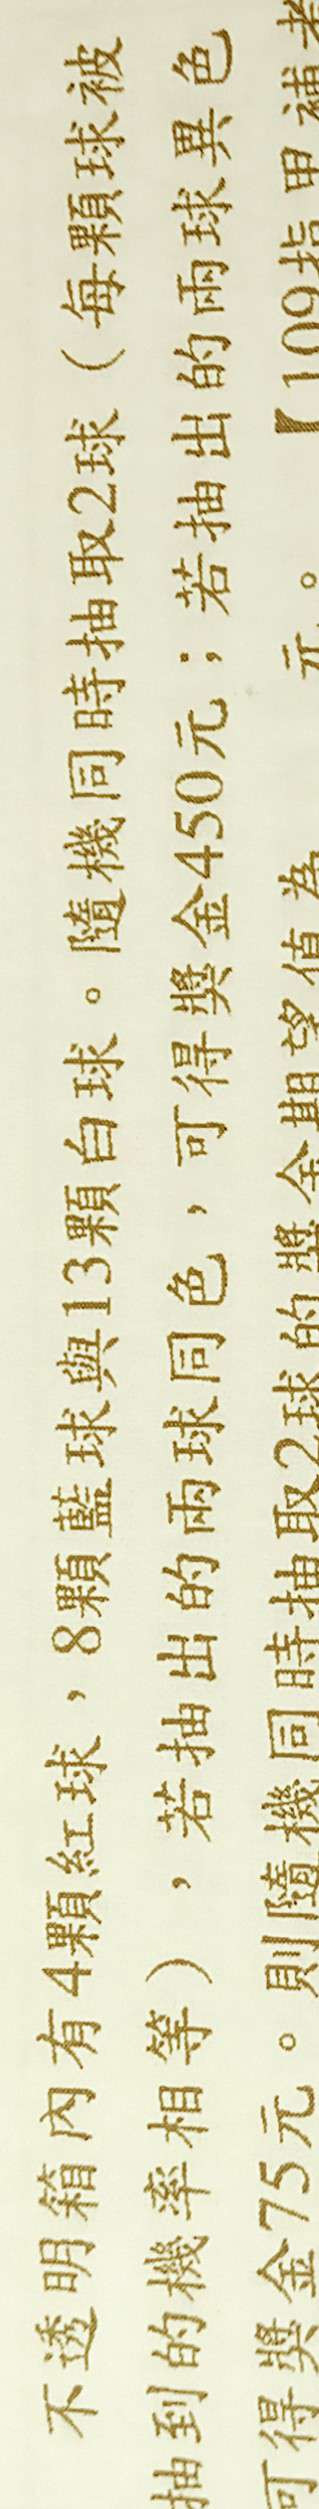 不透明箱內有4顆紅球，8顆藍球與13顆白球。隨機同時抽取2球（每顆球被
抽到的機率相等），若抽出的兩球同色，可得獎金450元；若抽出的兩球異色
可得獎金75元。則隨機同時抽取2球的獎金期望值為 元。 【109指甲補考